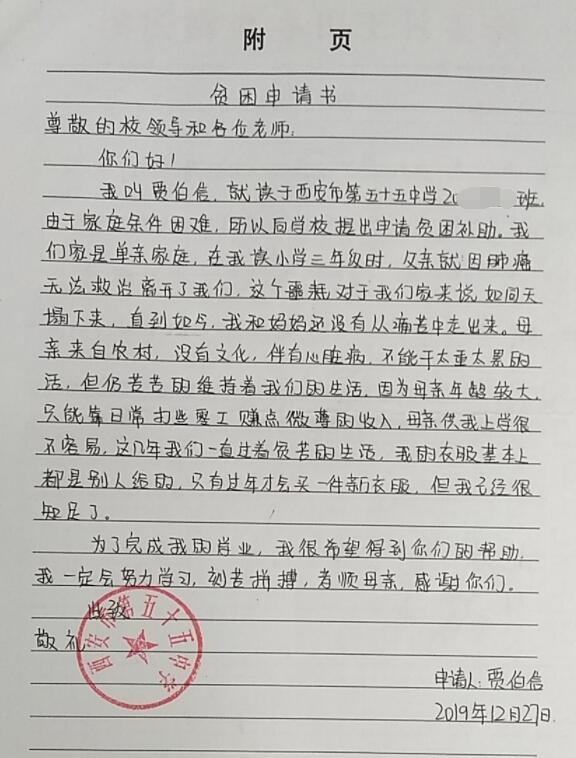 附 页
贫困申请书
尊敬的校领导和各位老师:
你们好!
我叫贾伯信,就读于西安市第五十五中学20班,
由于家庭条件困难,所以向学校提出申请贫困补助。我
们家是单亲家庭,在我读小学三年级时,父亲就因肺癌
无法救治离开了我们,这个噩耗对于我们家来说如同天
塌下来,直到如今,我和妈妈还没有从痛苦中走出来。母
亲来自农村,没有文化,伴有心脏病,不能干太重太累的
活,但仍苦苦的维持着我们的生活,因为母亲年龄较大,
只能靠日常打些零工赚点微薄的收入,母亲供我上学很
不容易,这几年我们一直过着贫苦的生活,我的衣服基本上
都是别人给的,只有过年才会买一件新衣服,但我已经很
知足了。
为了完成我的学业,我很希望得到你们的帮助,
我一定会努力学习,刻苦拼搏,孝顺母亲,感谢你们。
此致
敬礼
西安市第五十五中学
申请人:贾伯信
2019年12月27日.